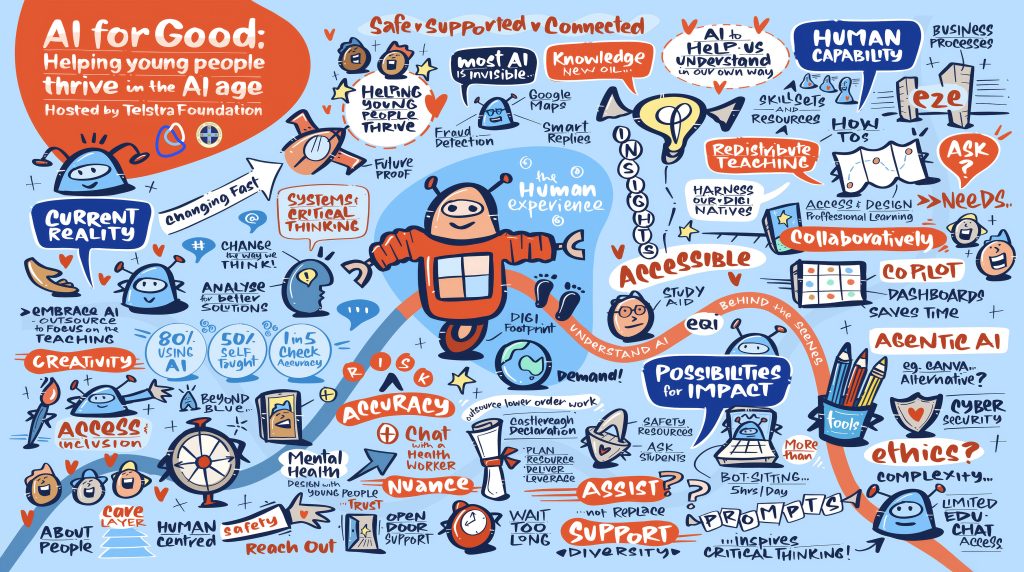 AI for Good:
Helping young people
thrive in the AI age
Hosted by Telstra Foundation
Safe ♥ Supported ♥ Connected
HELPING
YOUNG
PEOPLE
THRIVE
most AI
is invisible...
Google
Maps
Fraud
Detection
Smart
Replies
Knowledge
NEW OIL...
AI to
HELP US
understand
in our own way
HUMAN
CAPABILITY
BUSINESS
PROCESSES
SKILLSETS
AND
RESOURCES
eze
HOW
TOs
ASK
?
Redistribute
TEACHING
HARNESS
OUR DIGI
NATIVES
ACCESS & DESIGN
Proffessional Learning
>>NEEDS..
Collaboratively
INSIGHTS
Future
PROOF
Changing Fast
CURRENT
REALITY
SYSTEMS &
CRITICAL
THINKING
the
Human
experience
@
#
CHANGE
the way we
THINK!
ANALYSE
for better
SOLUTIONS
>EMBRACE AI
OUTSOURCE
to FOCUS on the
TEACHING
CREATIVITY
80%
USING
AI
50%
SELF
Taught
1 in 5
Check
Accuracy
ACCESSIBLE
STUDY
AID
COPILOT
DASHBOARDS
SAVES TIME
DIGI
Footprint
UNDERSTAND AI
eqi
BEHIND THE SCENES
Demand!
POSSIBILITIES
for IMPACT
AGENTIC AI
eg. CANVA...
Alternative?
tools
CYBER
SECURITY
ACCESS &
inclusion
BEYOND
BLUE...
RISK
ACCURACY
Chat
with a
HEALTH
WORKER
NUANCE
outsource lower order work
Castlereagh
DECLARATION
PLAN
RESOURCE
DELIVER
LEVERAGE
SAFETY
RESOURCES
ASK
STUDENTS
MORE
than
BOT-SITTING...
5hrs/Day
ethics?
COMPLEXITY...
Mental
Health
DESIGN with
YOUNG PEOPLE
TRUST
ASSIST
??
...not Replace
PROMPTS
...inspires
CRITICAL THINKING!
LIMITED
EDU-
CHAT
Access
ABOUT
People
care
LAYER
HUMAN
Centred
safety
Reach Out
OPEN
DOOR
SUPPORT
WAIT
TOO
LONG
SUPPORT
♥DIVERSITY♥